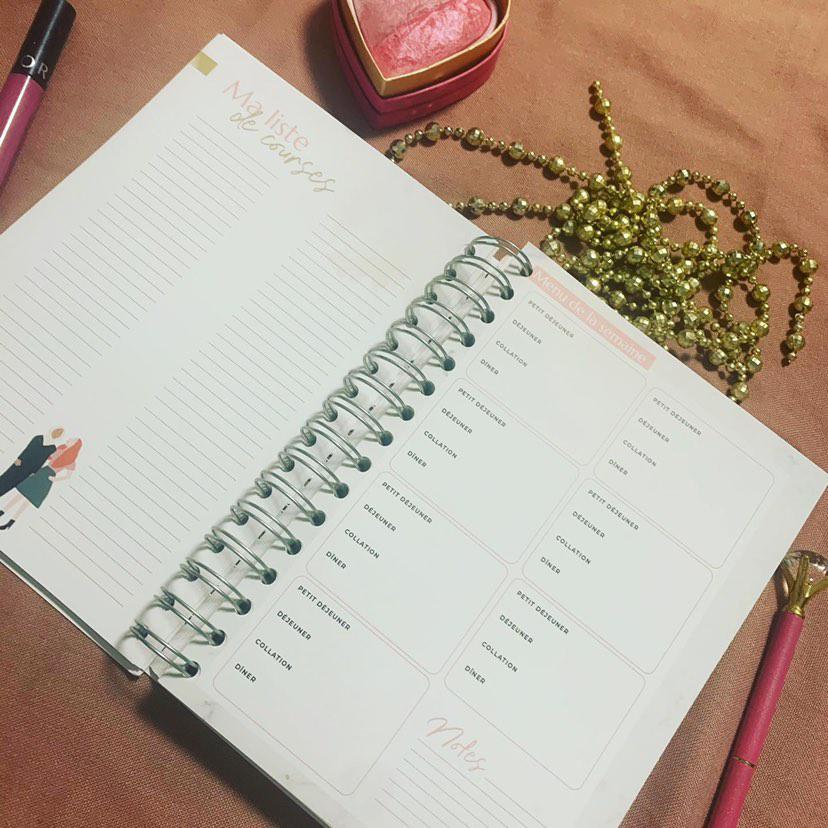 OR
Ma liste
de courses
Menu de la semaine
PETIT DÉJEUNER
DÉJEUNER
COLLATION
DÎNER
PETIT DÉJEUNER
DÉJEUNER
COLLATION
DÎNER
PETIT DÉJEUNER
DÉJEUNER
COLLATION
DÎNER
PETIT DÉJEUNER
DÉJEUNER
COLLATION
DÎNER
PETIT DÉJEUNER
DÉJEUNER
COLLATION
DÎNER
PETIT DÉJEUNER
DÉJEUNER
COLLATION
DÎNER
PETIT DÉJEUNER
DÉJEUNER
COLLATION
DÎNER
Notes